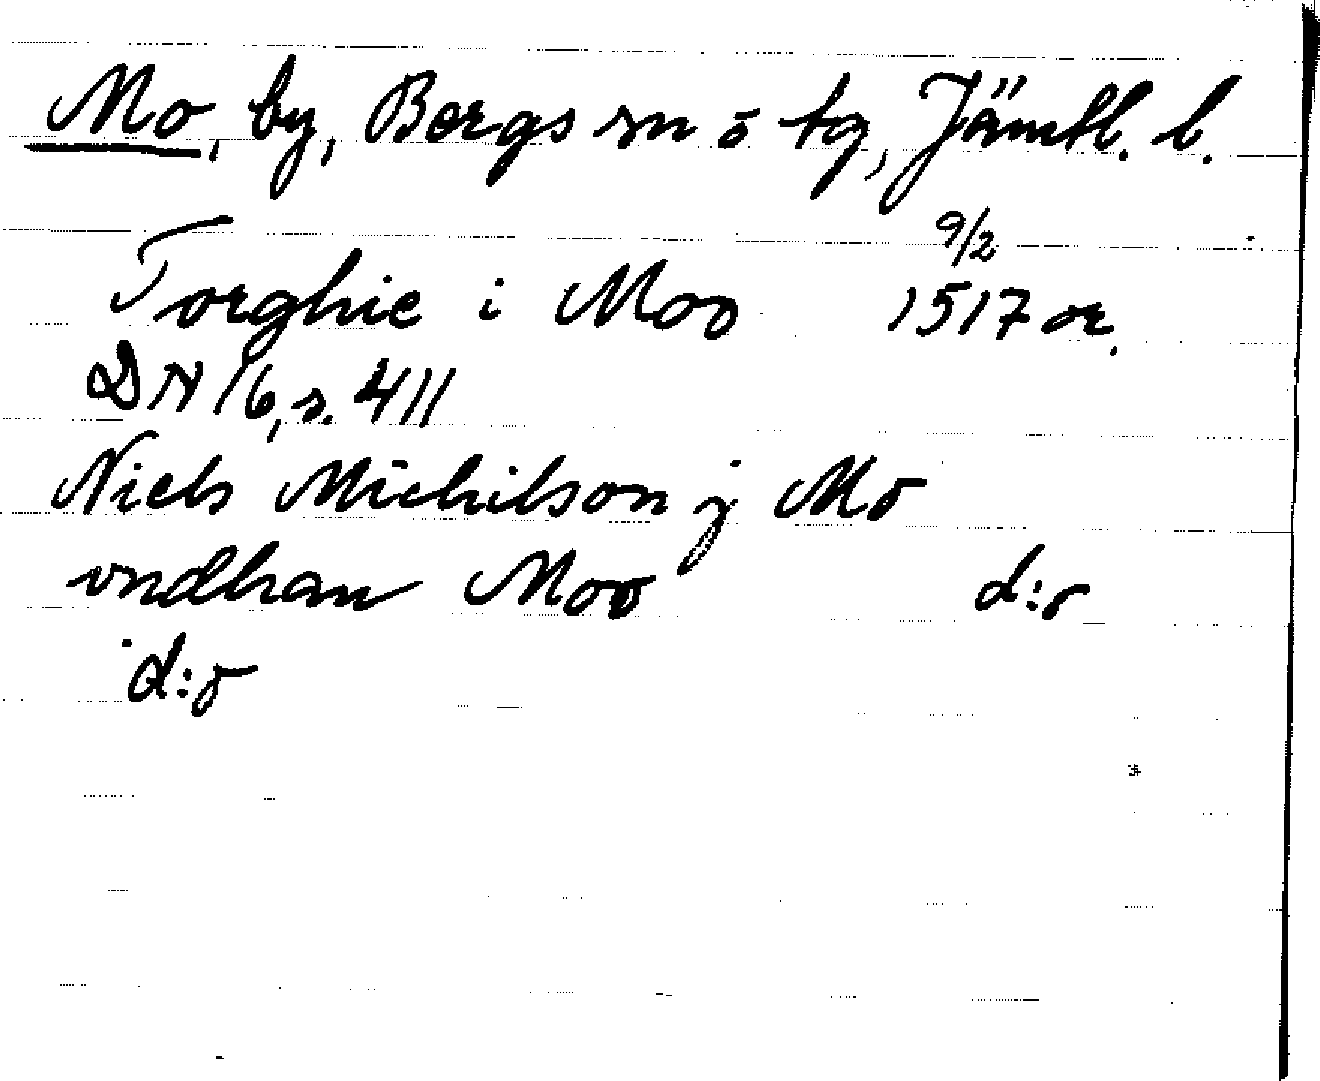 Mo, by, Bergs sn o tg, Jämtl. l.
9/2
Torghie i Moo 1517 or.
DN 16, s. 411
Niels Michilson j Mo
vndhan Moo d:o
d:o